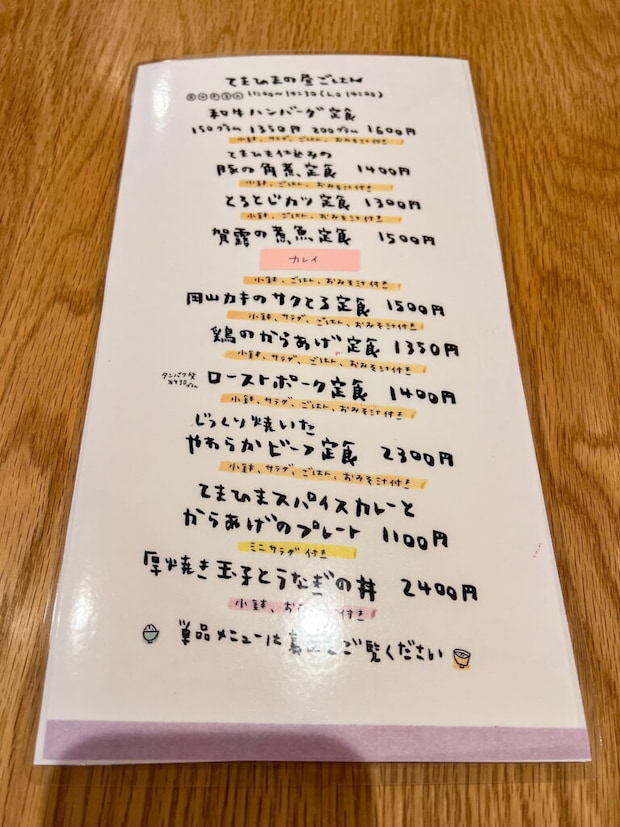 てまひまの昼ごはん
11:00〜14:30(L.O 14:00)
和牛ハンバーグ定食
150グラム 1350円 200グラム 1600円
小鉢、サラダ、ごはん、おみそ汁付き
てまひま仕込みの
豚の角煮定食 1400円
小鉢、ごはん、おみそ汁付き
とろとじカツ定食 1300円
小鉢、ごはん、おみそ汁付き
賀露の煮魚定食 1500円
カレイ
小鉢、ごはん、おみそ汁付き
岡山カキのサクとろ定食 1500円
小鉢、サラダ、ごはん、おみそ汁付き
鶏のからあげ定食 1350円
小鉢、サラダ、ごはん、おみそ汁付き
タンパク質
ローストポーク定食 1400円
小鉢、サラダ、ごはん、おみそ汁付き
じっくり焼いた
やわらかビーフ定食 2300円
小鉢、サラダ、ごはん、おみそ汁付き
てまひまスパイスカレーと
からあげのプレート 1100円
ミニサラダ付き
厚焼き玉子とうなぎの丼 2400円
小鉢、お付き
単品メニューは裏面をご覧ください